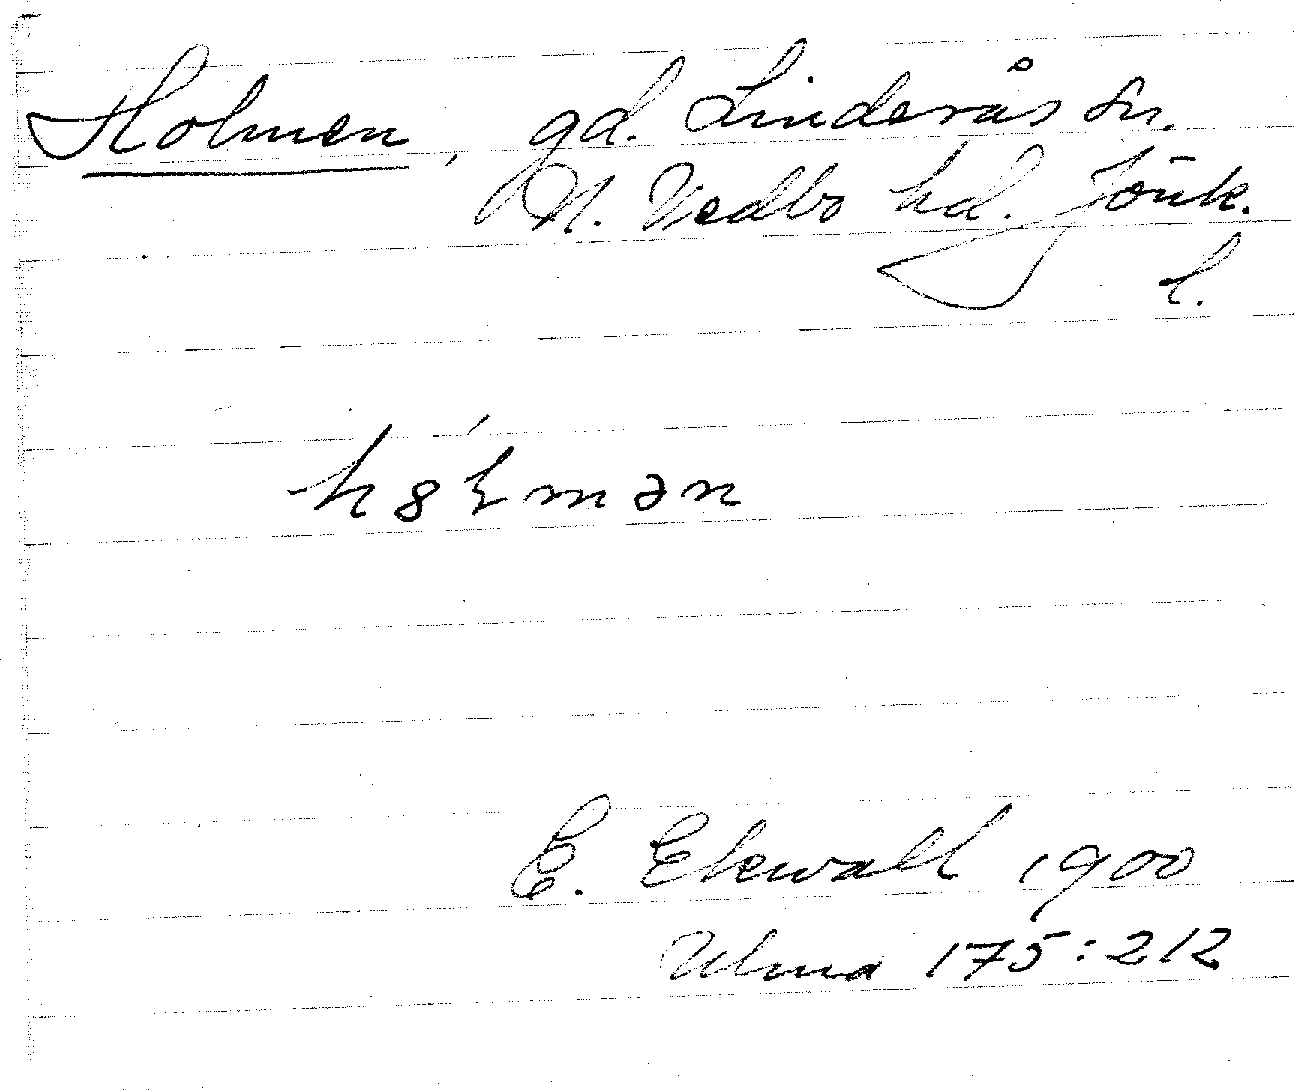 Holmen, gd. Linderås sn.
N. Vedbo hd. Jönk.
l.
h8ɫ´mən
E. Ekwall 1900
Ulma 175:212